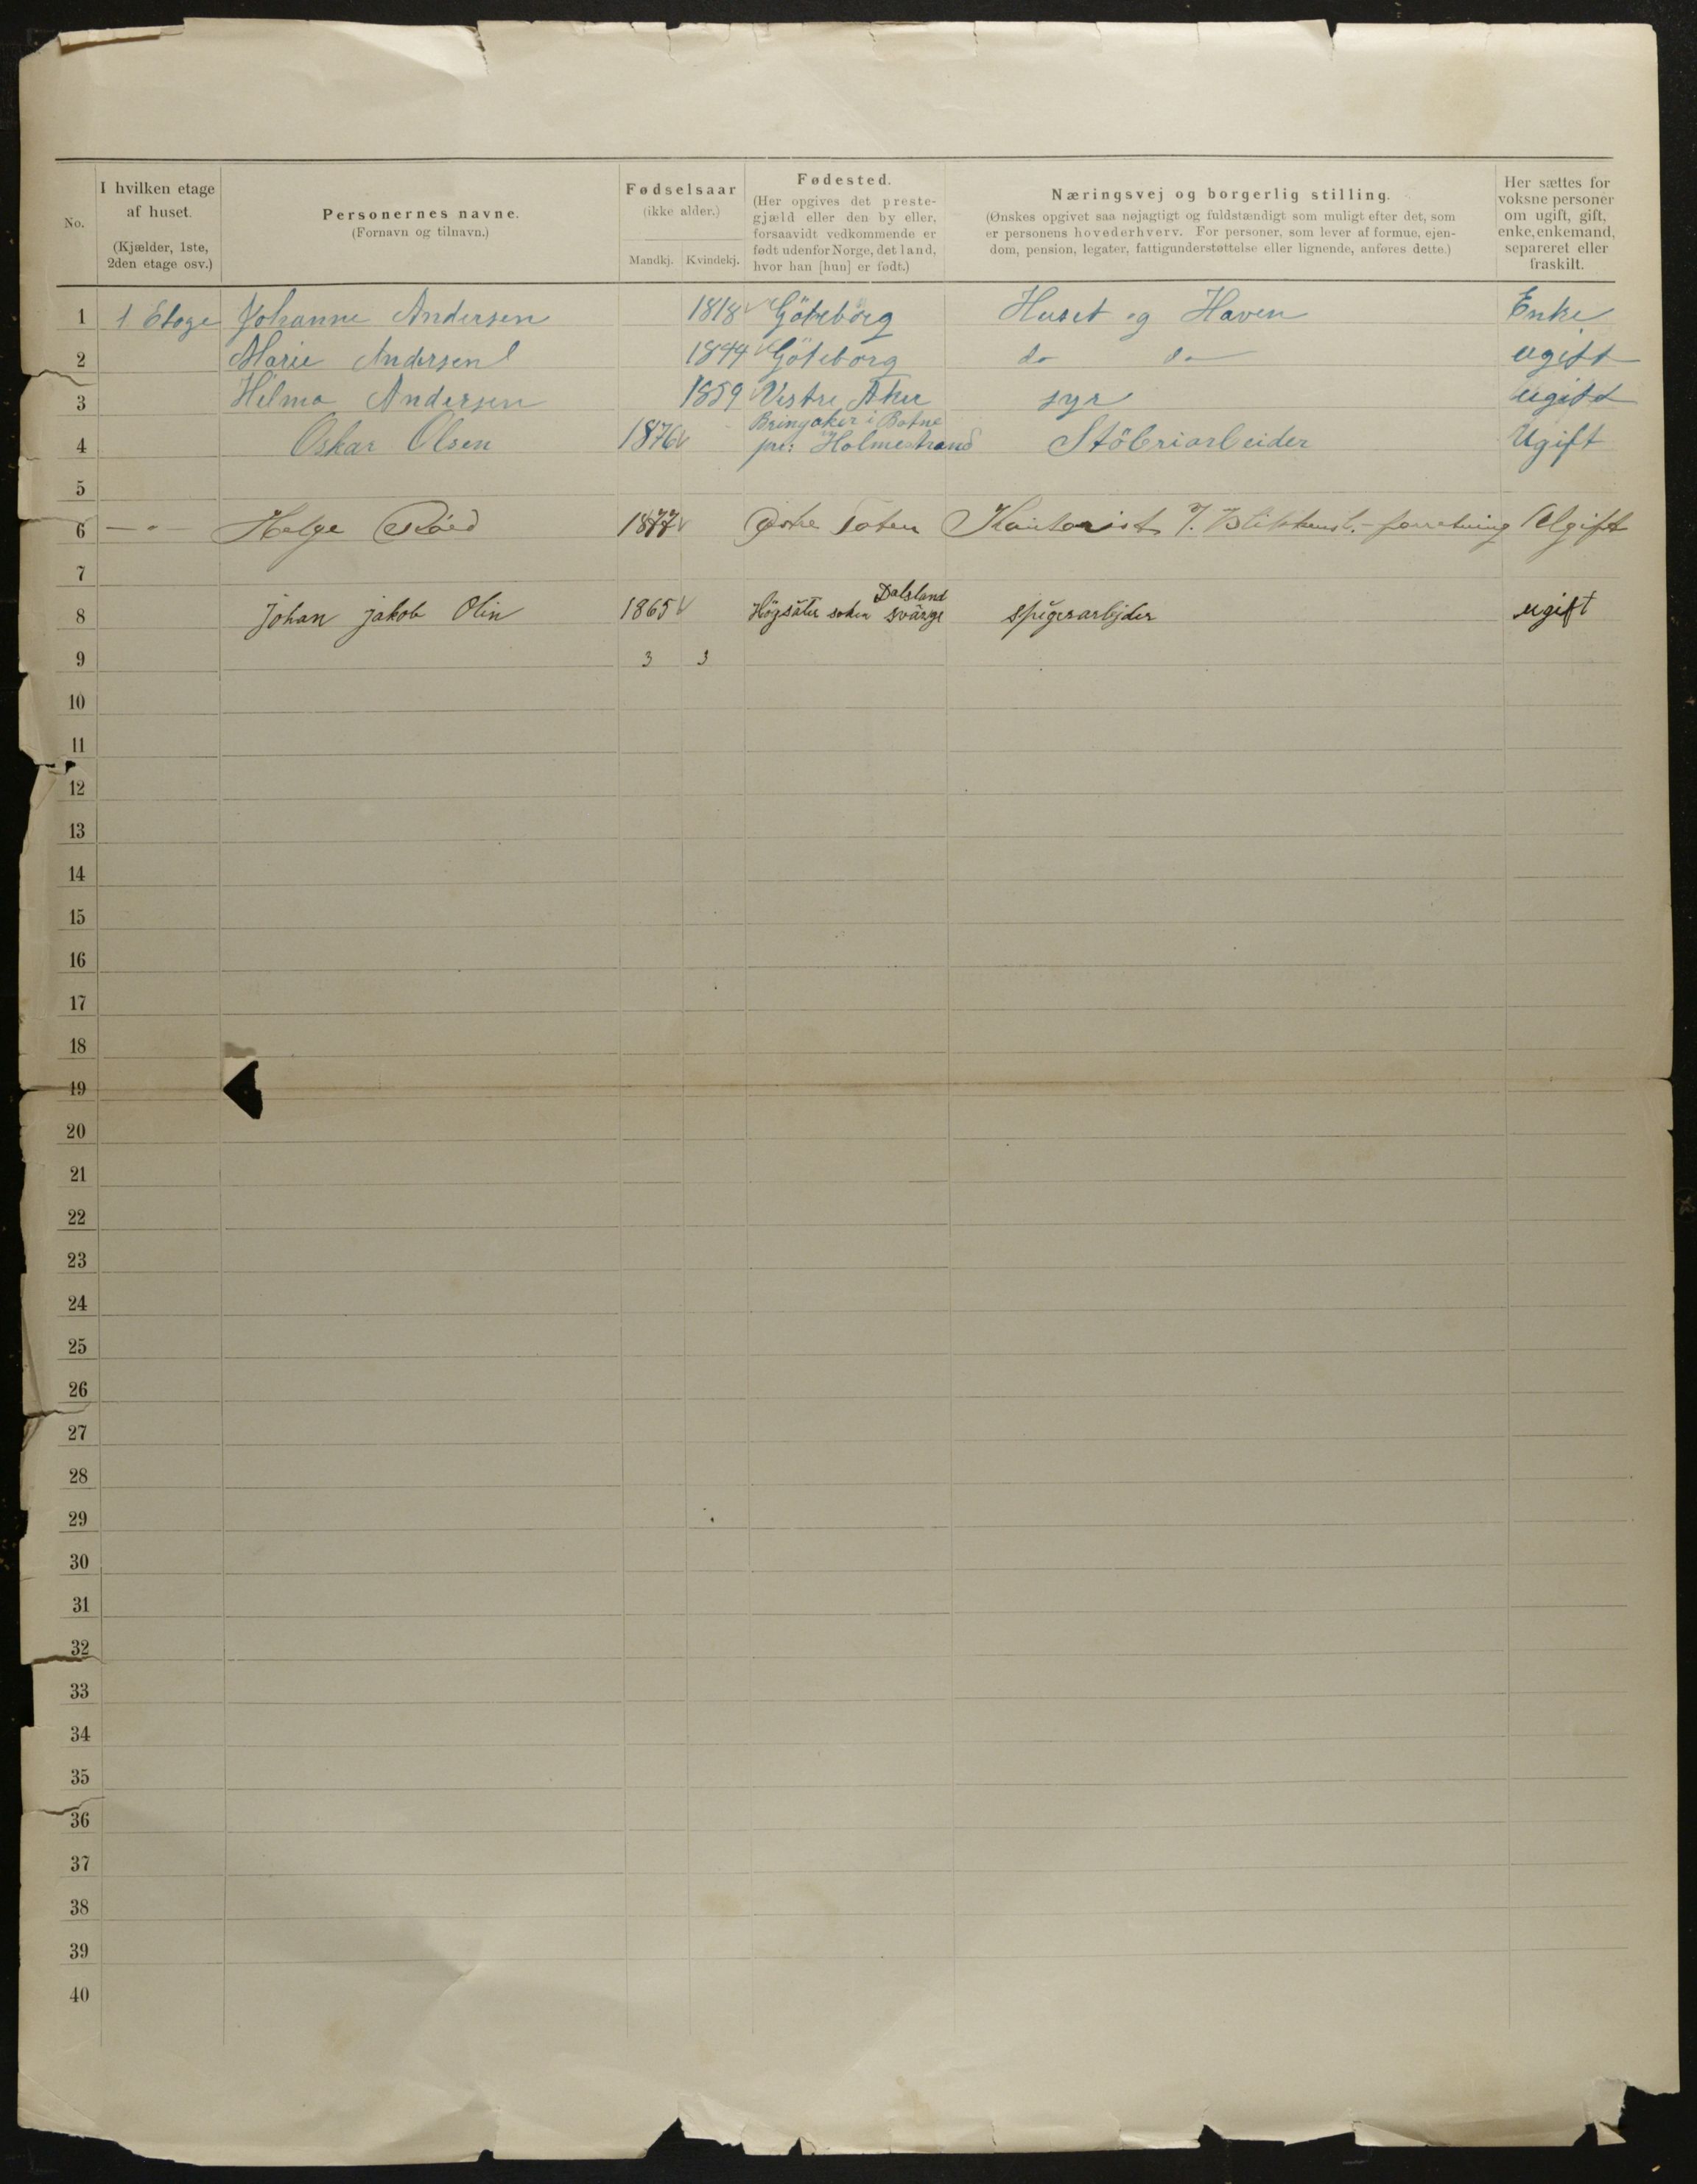 No.
I hvilken etage af huset.
(Kjælder, 1ste, 2den etage osv.)
Personernes navne.
(Fornavn og tilnavn.)
Fødselsaar
(ikke alder.)
Mandkj. Kvindekj.
Fødested.
(Her opgives det preste-
gjæld eller den by eller,
forsaavidt vedkommende er
født udenfor Norge, det land,
hvor han [hun] er født.)
Næringsvej og borgerlig stilling.
(Ønskes opgivet saa nøjagtigt og fuldstændigt som muligt efter det, som
er personens hovederhverv. For personer, som lever af formue, ejen-
dom, pension, legater, fattigunderstøttelse eller lignende, anføres dette.)
Her sættes for
voksne personer
om ugift, gift,
enke, enkemand,
separeret eller
fraskilt.
1 1 Etage Johanne Andersen 1818 Göteborg Huset og Haven Enke
2 Marie Andersen 1844 Göteborg do do ugift
3 Hilma Andersen 1859 Vestre Aker syr ugift
Bringaker i Botne
4 Oskar Olsen 1876 pr: Holmestrand Stöberiarbeider Ugift
5
6 — " — Helge Røed 1877 Østre Toten Kontorist I. Blikkensl.-forretning Ugift
7
Dalsland
8 Johan Jakob Olin 1865 Högsäter soken svärge spigerarbjder ugift
9 3 3
10
11
12
13
14
15
16
17
18
19
20
21
22
23
24
25
26
27
28
29
30
31
32
33
34
35
36
37
38
39
40